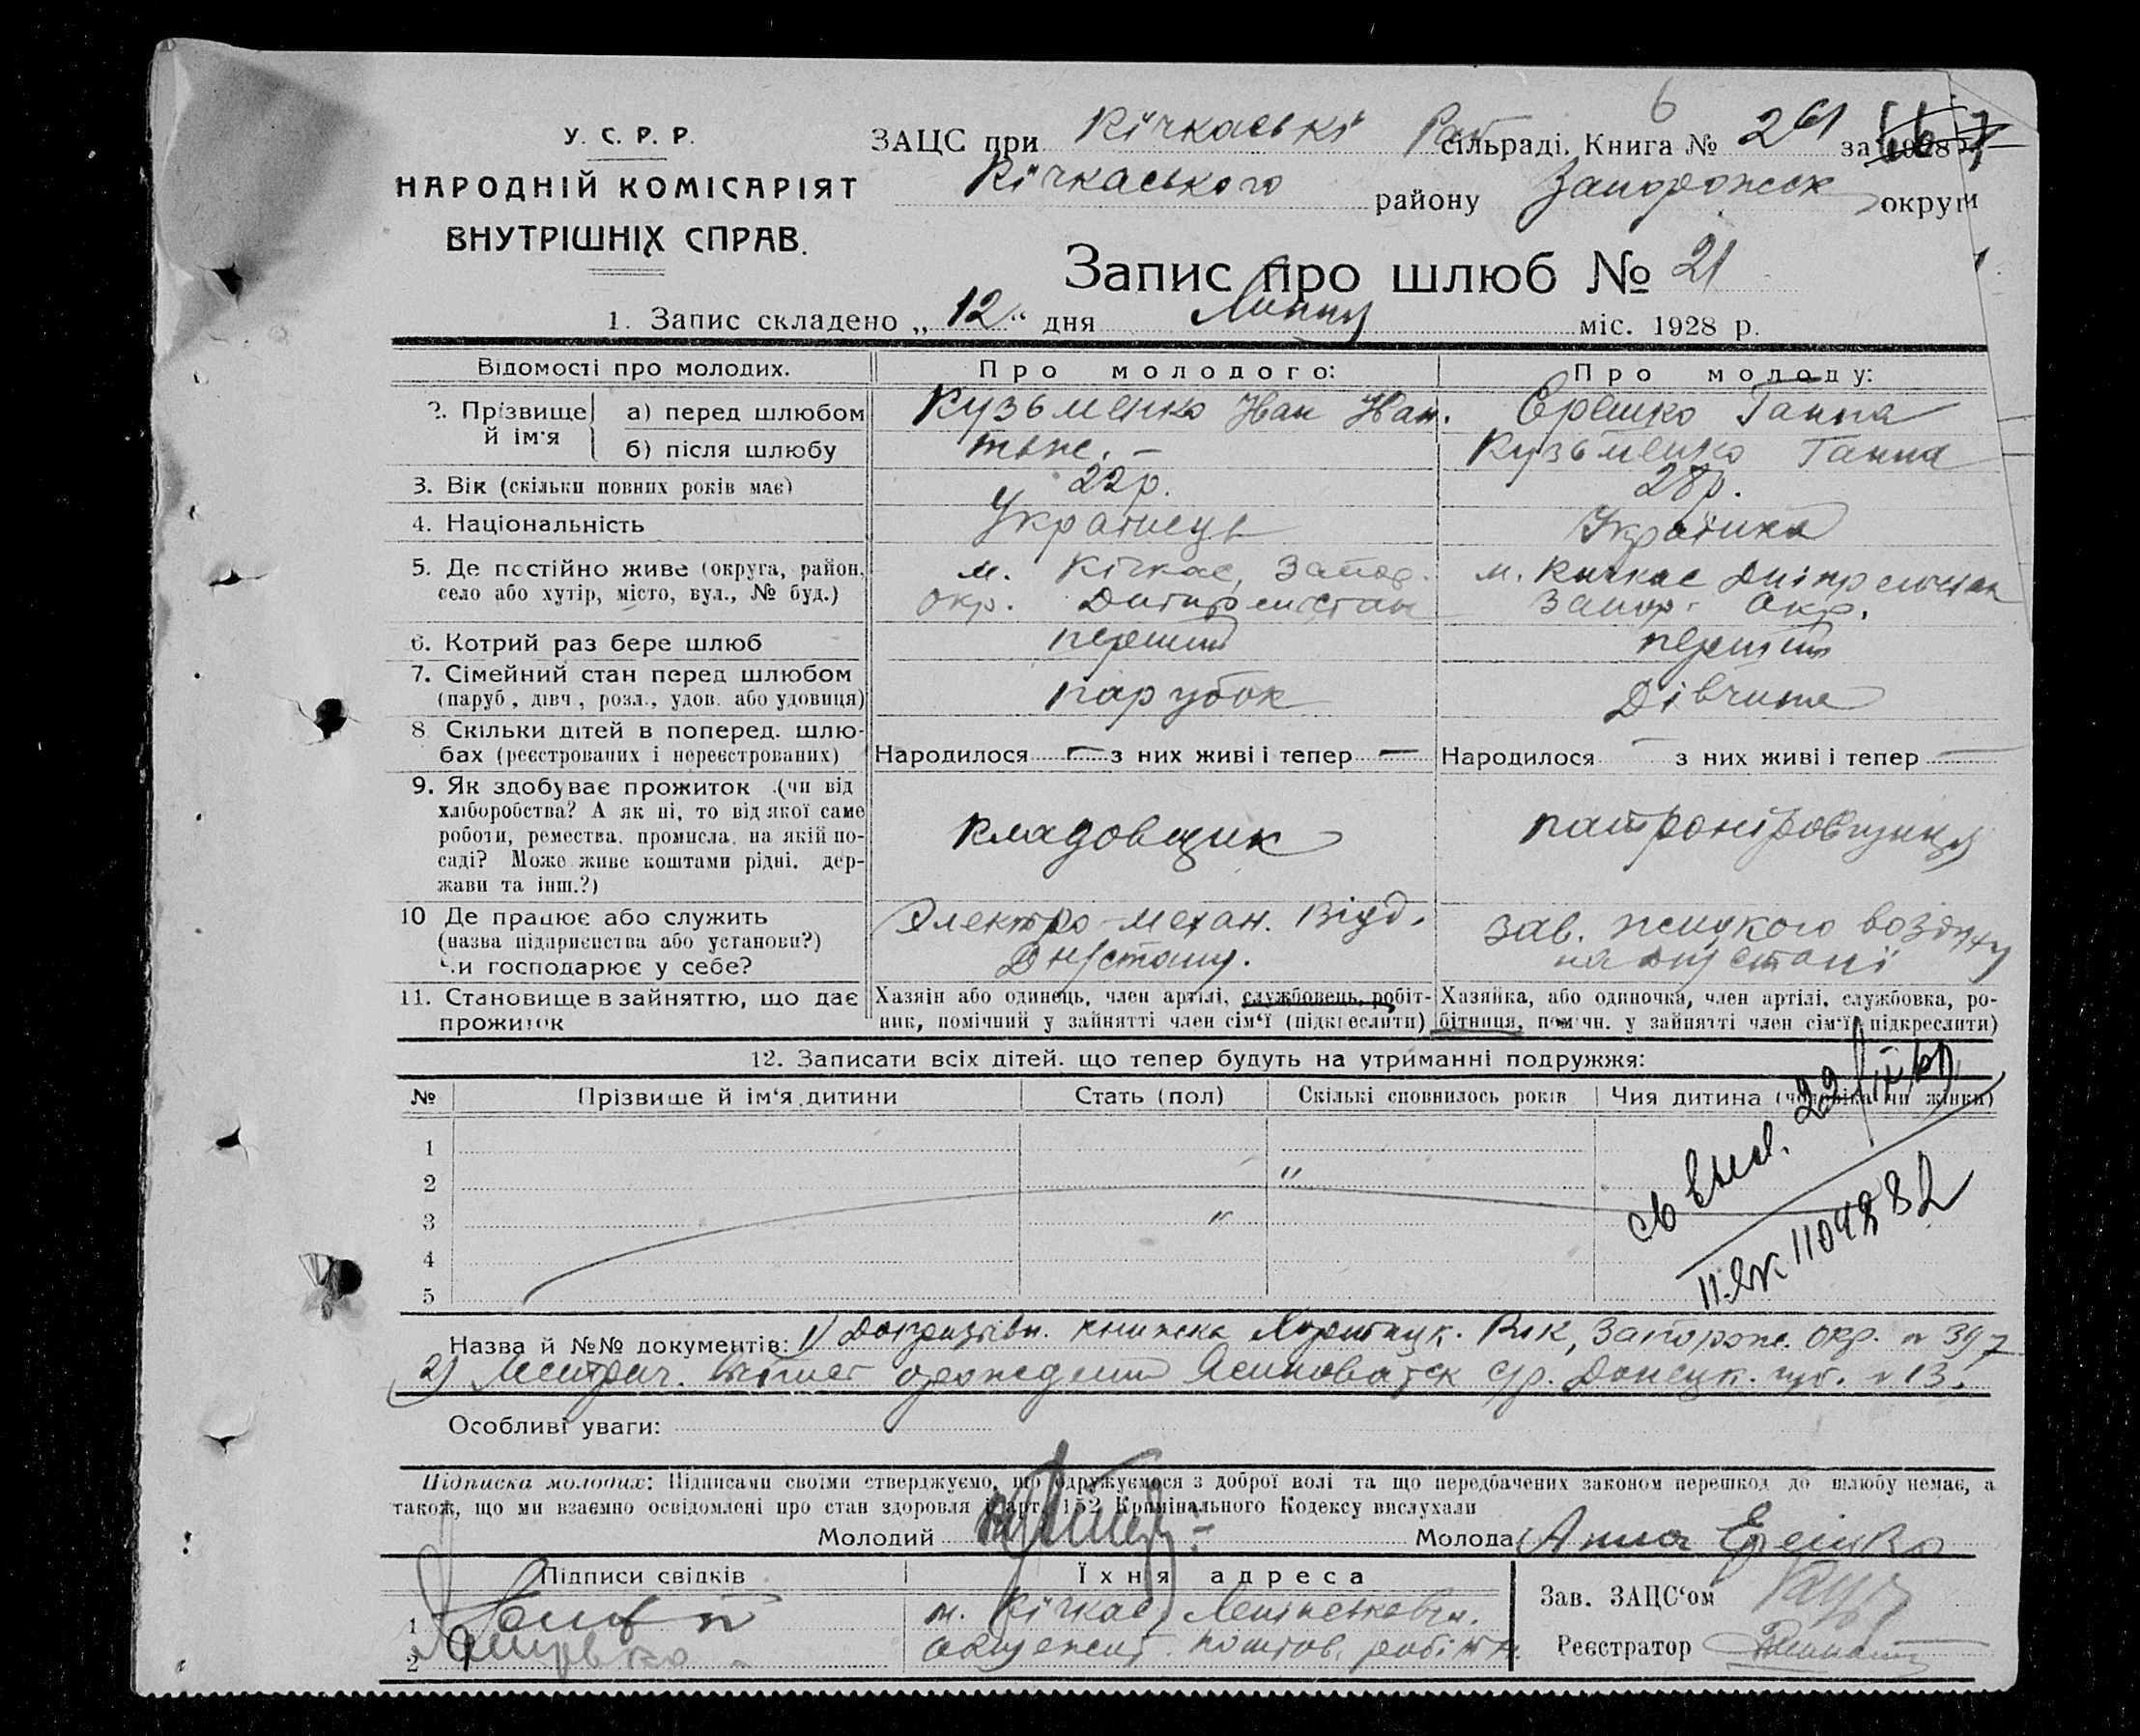 У. С. Р. Р.
НАРОДНІЙ КОМІСАРІЯТ
ВНУТРІШНІХ СПРАВ.
6
ЗАЦС при Кічкаські сільраді. Книга № 261 за 1928
Кічкаського району Запорожск округи
Запис про шлюб № 21
1. Запис складено „12“ дня Липня міс. 1928 р.
Відомості про молодих. Про молодого: Про молоду:
2. Прізвище й ім'я а) перед шлюбом Кузьменко Іван Іван. Єрешко Ганна
б) після шлюбу теж. – Кузьменко Ганна
3. Вік (скільки повних років має) 22 р. 28 р.
4. Національність Українець Українка
5. Де постійно живе (округа, район, село або хутір, місто, вул., № буд.) м. Кічкас, Запор. окр. м. Кичкас Запор. Окр.
6. Котрий раз бере шлюб перший перший
7. Сімейний стан перед шлюбом (паруб, дівч, розл., удов. або удовиця) парубок Дівчина
8 Скільки дітей в поперед. шлюбах (реєстрованих і нереєстрованих) Народилося – з них живі і тепер – Народилося – з них живі і тепер –
9. Як здобуває прожиток (чи від хліборобства? А як ні, то від якої саме роботи, ремества, промисла, на якій посаді? Може живе коштами рідні, держави та інш.?) кладовщик патроніровщиця
10 Де працює або служить (назва підприємства або установи?) Чи господарює у себе? Электро-механ. Відд. зав. жидкого воздуху на
11. Становище в зайняттю, що дає прожиток Хазяїн або одинець, член артілі, службовець, робітник, помічний у зайнятті член сім'ї (підкреслити) Хазяйка, або одиночка, член артілі, службовка, робітниця, поміч. у зайнятті член сім'ї підкреслити)
12. Записати всіх дітей, що тепер будуть на утриманні подружжя:
№ Прізвище й ім'я дитини Стать (пол) Скількі сповнилось років Чия дитина (чоловіка чи жінки)
1
2 "
3 "
4
5
Назва й №№ документів: 1) Допризівн. книжка Хортицк. ВІК, Запорож. окр. № 397
2) Метрич. Ясиноватск с/р. Донецк. № 13.
Особливі уваги:
Підписка молодих: Підписами своїми стверджуємо, що одружуємося з доброї волі та що передбачених законом перешкод до шлюбу немає, а
також, що ми взаємно освідомлені про стан здоровля і арт. 152 Крімінального Кодексу вислухали
Молодий Молода Анна Ерешко
Підписи свідків Їхня адреса
Зав. ЗАЦС'ом
1 м. Кічкас,
2
Реєстратор